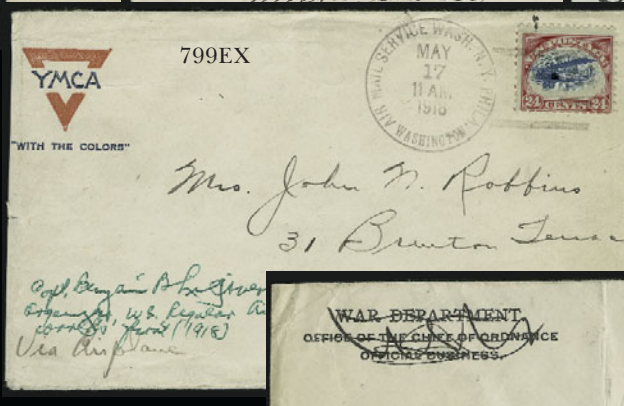 799EX
YMCA
"WITH THE COLORS"
AIR MAIL SERVICE WASH. N.Y. PHILA.
MAY
17
11 AM
1918
WASHINGTON
24 CENTS 24
Mrs. John N. Robbins
31
Capt. Benjamin B
organizer, U.S. Regular
(1918)
Via Airplane
WAR DEPARTMENT
OFFICE OF THE CHIEF OF ORDNANCE
OFFICIAL BUSINESS.